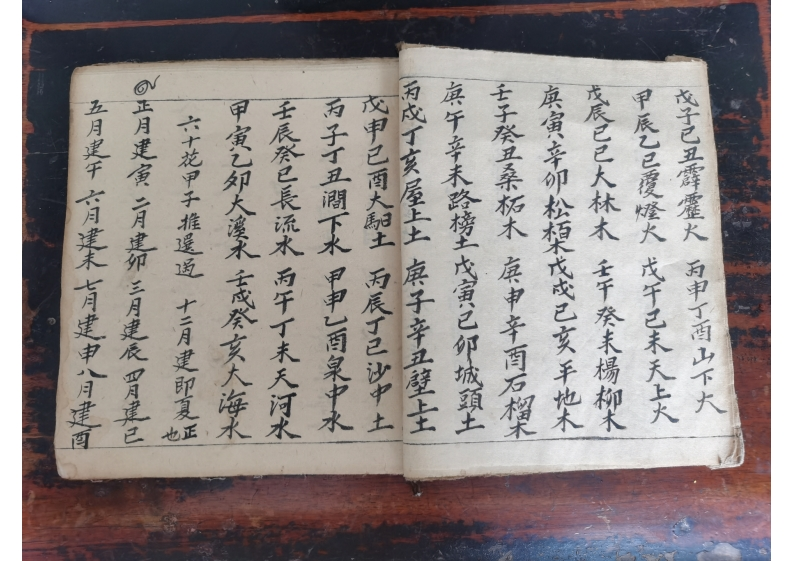 戊子己丑霹靂火 丙申丁酉山下火
甲辰乙巳覆燈火 戊午己未天上火
戊辰己巳大林木 壬午癸未楊柳木
庚寅辛卯松栢木 戊戌己亥平地木
壬子癸丑桑柘木 庚申辛酉石榴木
庚午辛未路傍土 戊寅己卯城頭土
丙戌丁亥屋上土 庚子辛丑壁上土
戊申己酉大馹土 丙辰丁巳沙中土
丙子丁丑澗下水 甲申乙酉泉中水
壬辰癸巳長流水 丙午丁未天河水
甲寅乙夘大溪水 壬戌癸亥大海水
六十花甲子推還過 十二月建即夏正也
正月建寅 二月建卯 三月建辰 四月建巳
五月建午 六月建未 七月建申 八月建酉